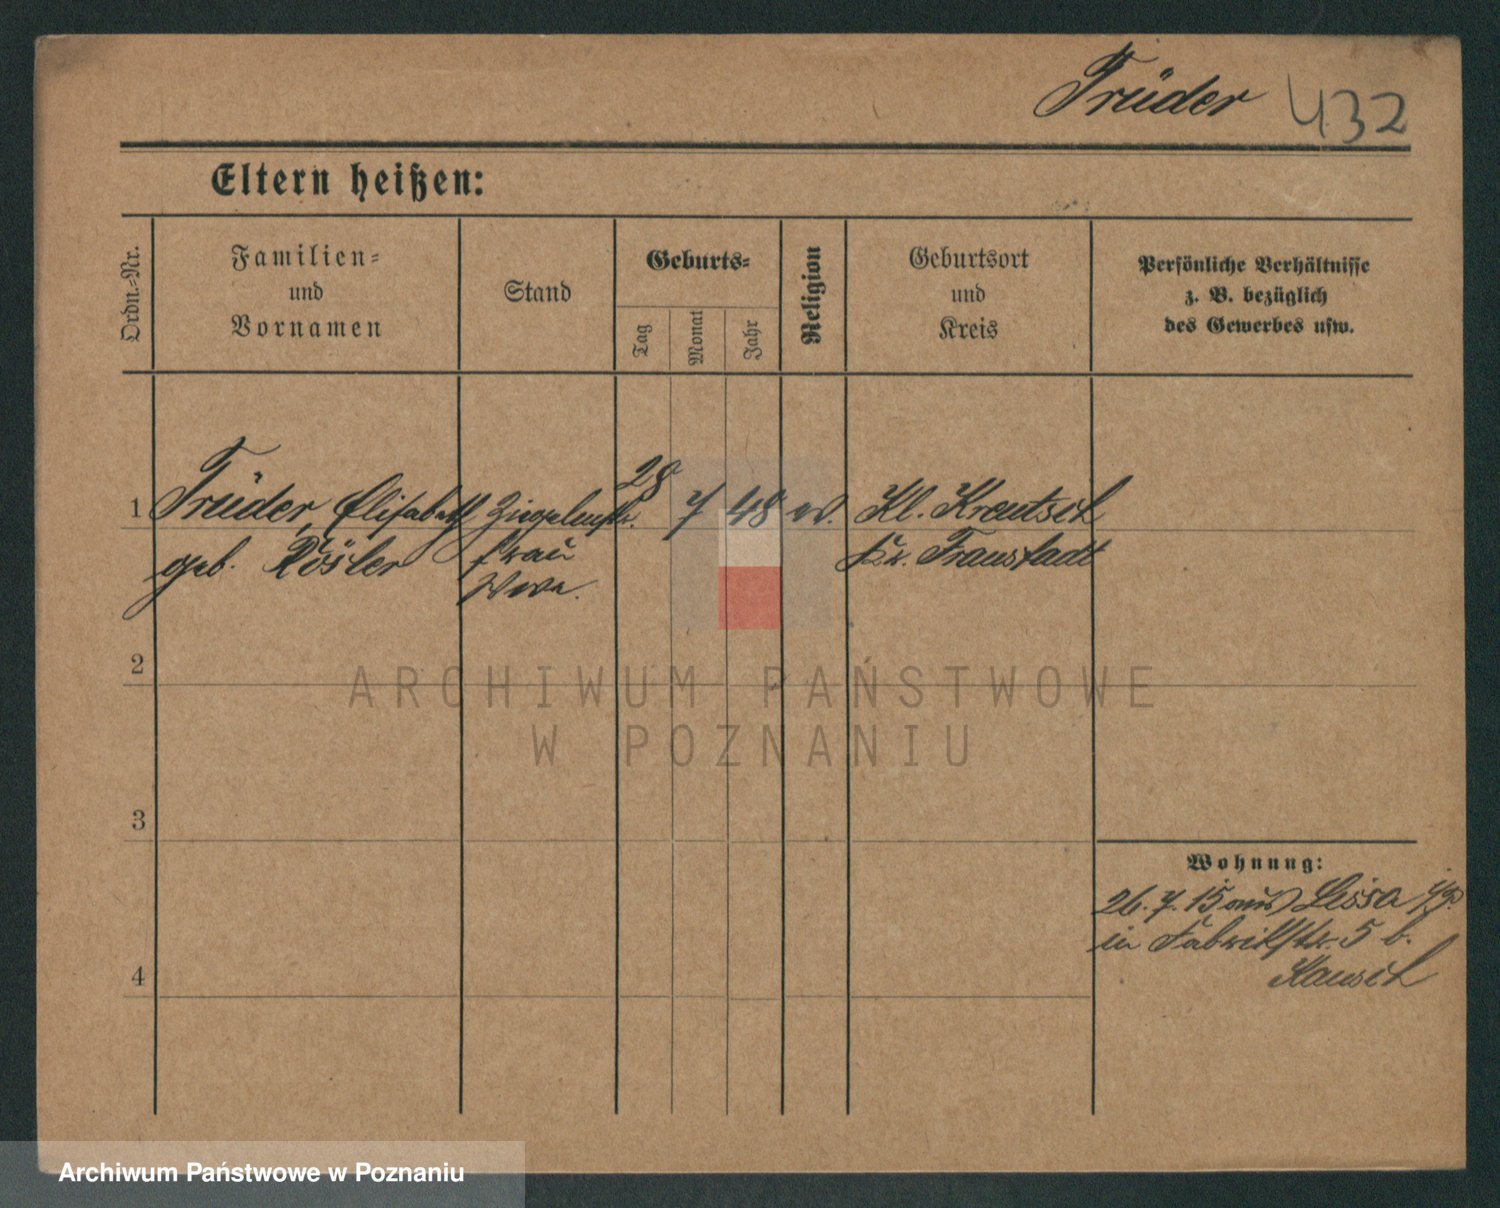 Trüder 432
Eltern heißen:
Ordn.-Nr.
Familien-
und
Vornamen
Stand
Geburts-
Tag
Monat
Jahr
Religion
Geburtsort
und
Kreis
Persönliche Verhältnisse
z. B. bezüglich
des Gewerbes usw.
1 Trüder, Elisabeth 28 7 48 ev. Kl. Kreutsch
geb. Rösler frau Kr. Fraustadt
Wwe.
2
ARCHIWUM PAŃSTWOWE
W POZNANIU
3
Wohnung:
26. 7. 15 aus Lissa
in Fabrikstr. 5 b.
4
Archiwum Państwowe w Poznaniu